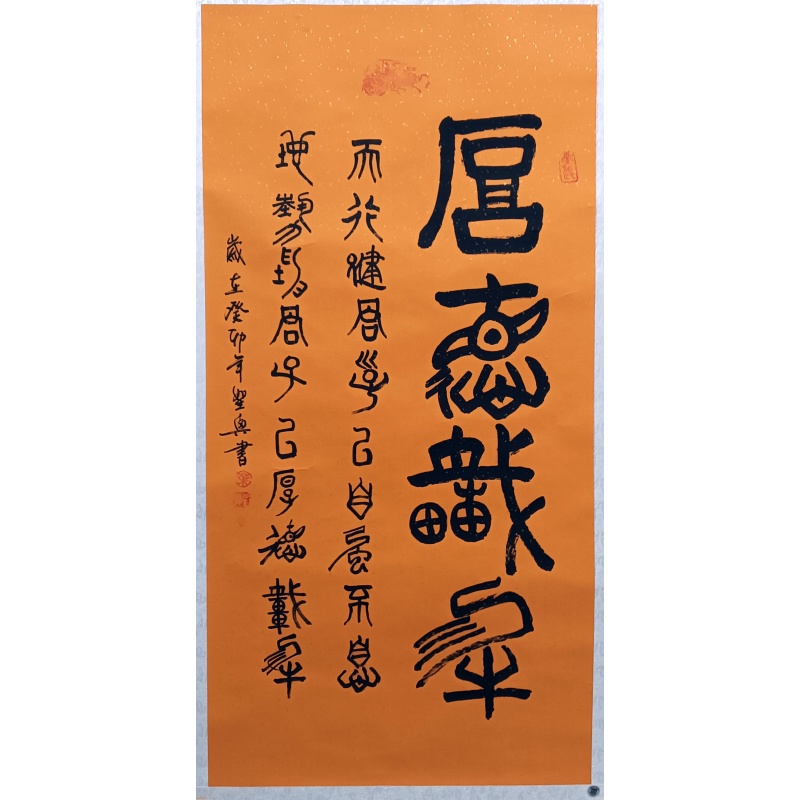 厚德載物
天行健君子以自強不息
地勢坤君子以厚德載物
歲在癸卯年書